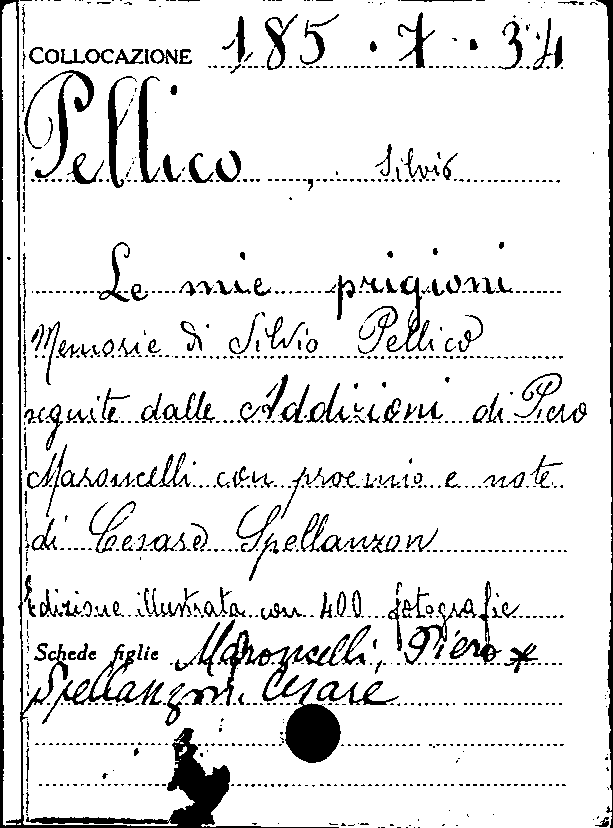 COLLOCAZIONE 185.7.34
Pellico, Silvio
Le mie prigioni
Memorie di Silvio Pellico
seguite dalle Addizioni di Piero
Maroncelli con proemio e note
di Cesare Spellanzon
Edizione illustrata con 400 fotografie
Schede figlie Maroncelli, Piero *
Spellanzon, Cesare